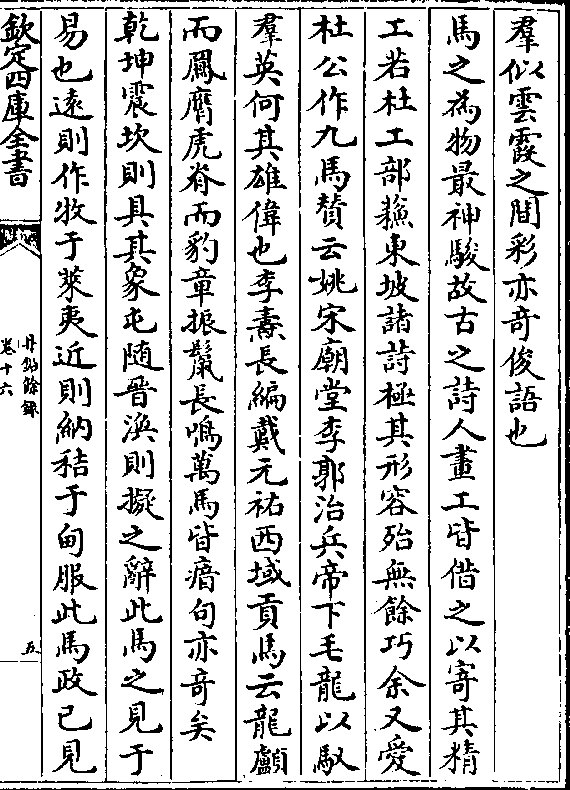 羣似雲霞之間彩亦奇俊語也
馬之為物最神駿故古之詩人畫工皆借之以寄其精
工若杜工部蘓東坡諸詩極其形容殆無餘巧余又愛
杜公作九馬賛云姚宋廟堂李郭治兵帝下毛龍以馭
羣英何其雄偉也李燾長編戴元祐西域貢馬云龍顱
而鳳膺虎脊而豹章振鬛長鳴萬馬皆瘖句亦奇矣
乾坤震坎則具其象屯随晉渙則擬之辭此馬之見于
易也遠則作牧于萊夷近則納秸于甸服此馬政已見
欽定四庫全書
丹鉛餘錄
卷十六
五